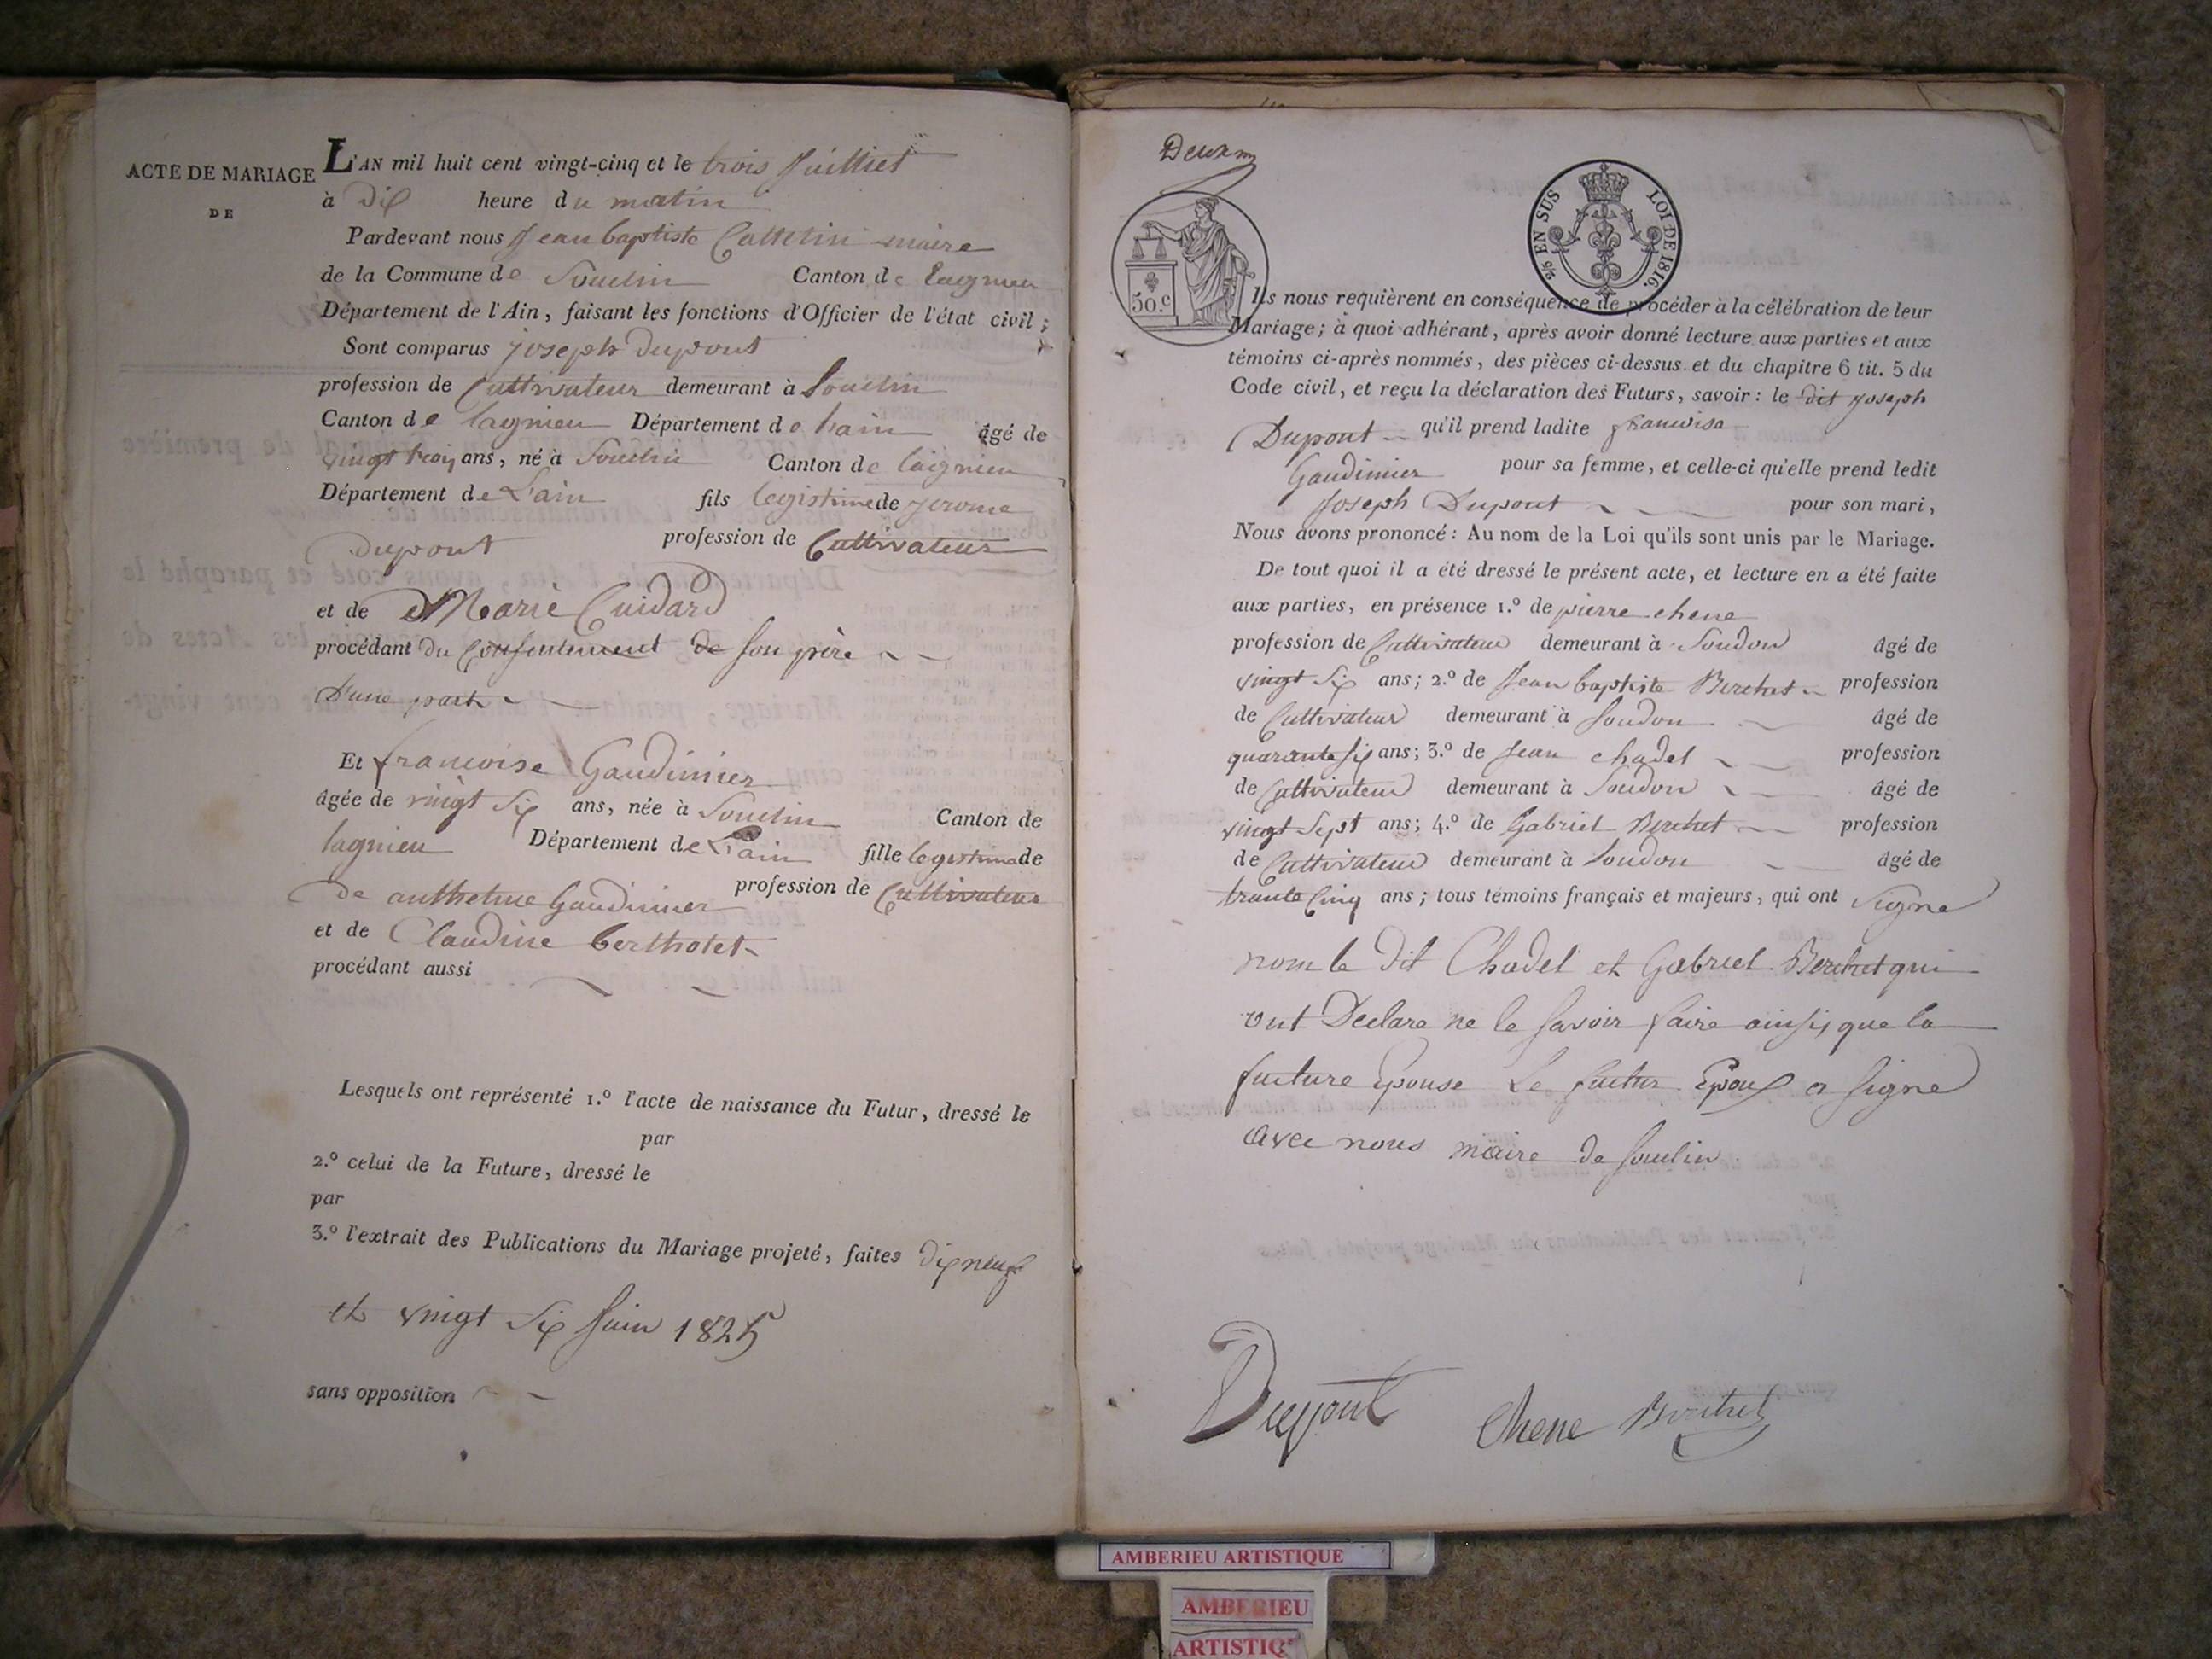 ACTE DE MARIAGE
DE
L'AN mil huit cent vingt-cinq et le trois Juilliet
à Dix heure du matin
Pardevant nous Jean baptiste Cattelin maire
de la Commune de Souclin Canton de lagnieu
Département de l'Ain, faisant les fonctions d'Officier de l'état civil;
Sont comparus joseph dupont
profession de Cultivateur demeurant à Souclin
Canton de lagnieu Département de lain âgé de
vingt trois ans, né à Souclin Canton de laignieu
Département de Lain fils legistime de jerome
dupont profession de Cultivateur
et de Marie Cuidard
procédant du Consentement de son père
D'une part
Et francoise Gaudinier
âgée de vingt Six ans, née à Souclin Canton de
lagnieu Département de Lain fille legistime de
de anthelme Gaudinier profession de Cultivateur
et de Claudine bertholet
procédant aussi
Lesquels ont représenté 1.º l'acte de naissance du Futur, dressé le
par
2.º celui de la Future, dressé le
par
3.º l'extrait des Publications du Mariage projeté, faites dixneuf
et vingt Six Juin 1825
sans opposition
50.c
2/5 EN SUS LOI DE 1816.
Ils nous requièrent en conséquence de procéder à la célébration de leur
Mariage; à quoi adhérant, après avoir donné lecture aux parties et aux
témoins ci-après nommés, des pièces ci-dessus et du chapitre 6 tit. 5 du
Code civil, et reçu la déclaration des Futurs, savoir: le dit joseph
Dupont qu'il prend ladite francoise
Gaudinier pour sa femme, et celle-ci qu'elle prend ledit
Joseph Dupont pour son mari,
Nous avons prononcé: Au nom de la Loi qu'ils sont unis par le Mariage.
De tout quoi il a été dressé le présent acte, et lecture en a été faite
aux parties, en présence 1.º de pierre chene
profession de Cultivateur demeurant à Soudon âgé de
vingt Six ans; 2.º de Jean baptiste Berthet profession
de Cultivateur demeurant à Soudon âgé de
quarante six ans; 3.º de Jean chadel profession
de Cultivateur demeurant à Soudon âgé de
vingt Sept ans; 4.º de Gabriel Berthet profession
de Cultivateur demeurant à Soudon âgé de
trante Cinq ans; tous témoins français et majeurs, qui ont Signe
nom le Dit Chadel et Gabriel Berthet qui
ont Declare ne le savoir faire ainsis que la
future Epouse Le futur Epoux a signe
avec nous maire de Souclin
Dupont Chene Berthet
AMBERIEU ARTISTIQUE
AMBERIEU
ARTISTIQ